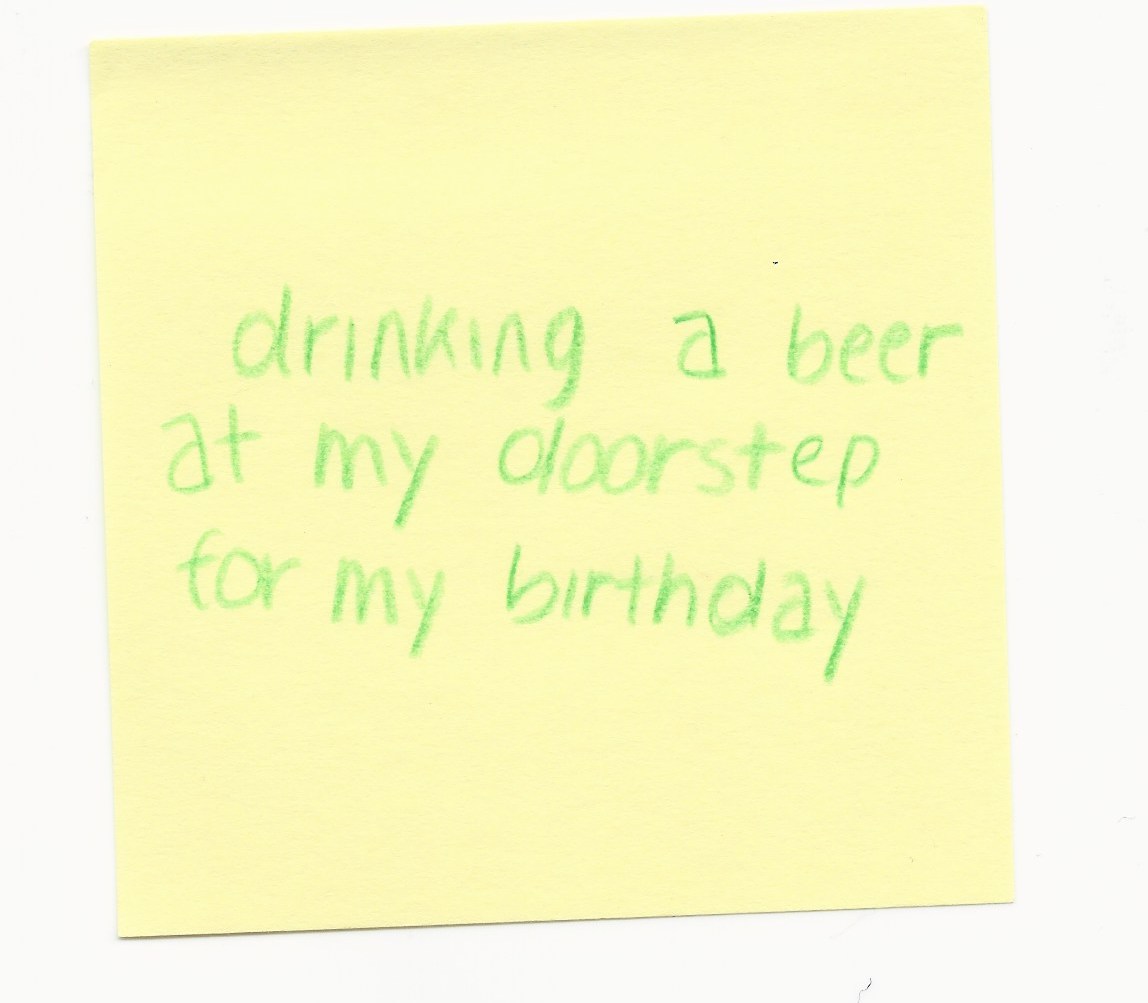 drinking a beer
at my doorstep
for my birthday